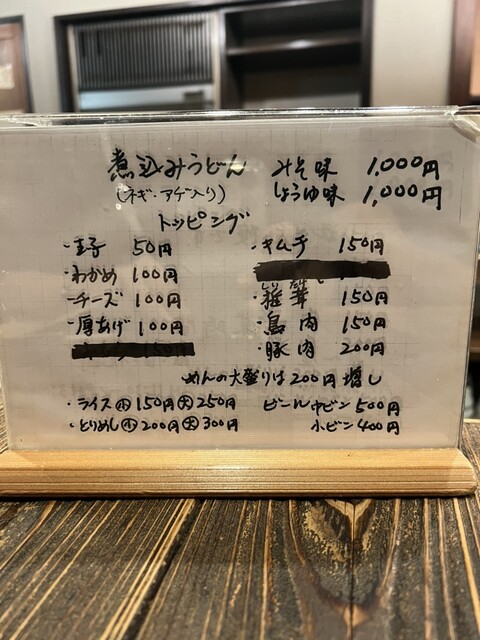 煮込みうどん みそ味 1,000円
(ネギ・アゲ入り) しょうゆ味 1,000円
トッピング
・玉子 50円
・わかめ 100円
・チーズ 100円
・厚あげ 100円
・キムチ 150円
・椎茸 150円
・鳥肉 150円
・豚肉 200円
めんの大盛りは200円増し
・ライス 小 150円 大 250円
・とりめし 小 200円 大 300円
ビール 中ビン 500円
小ビン 400円